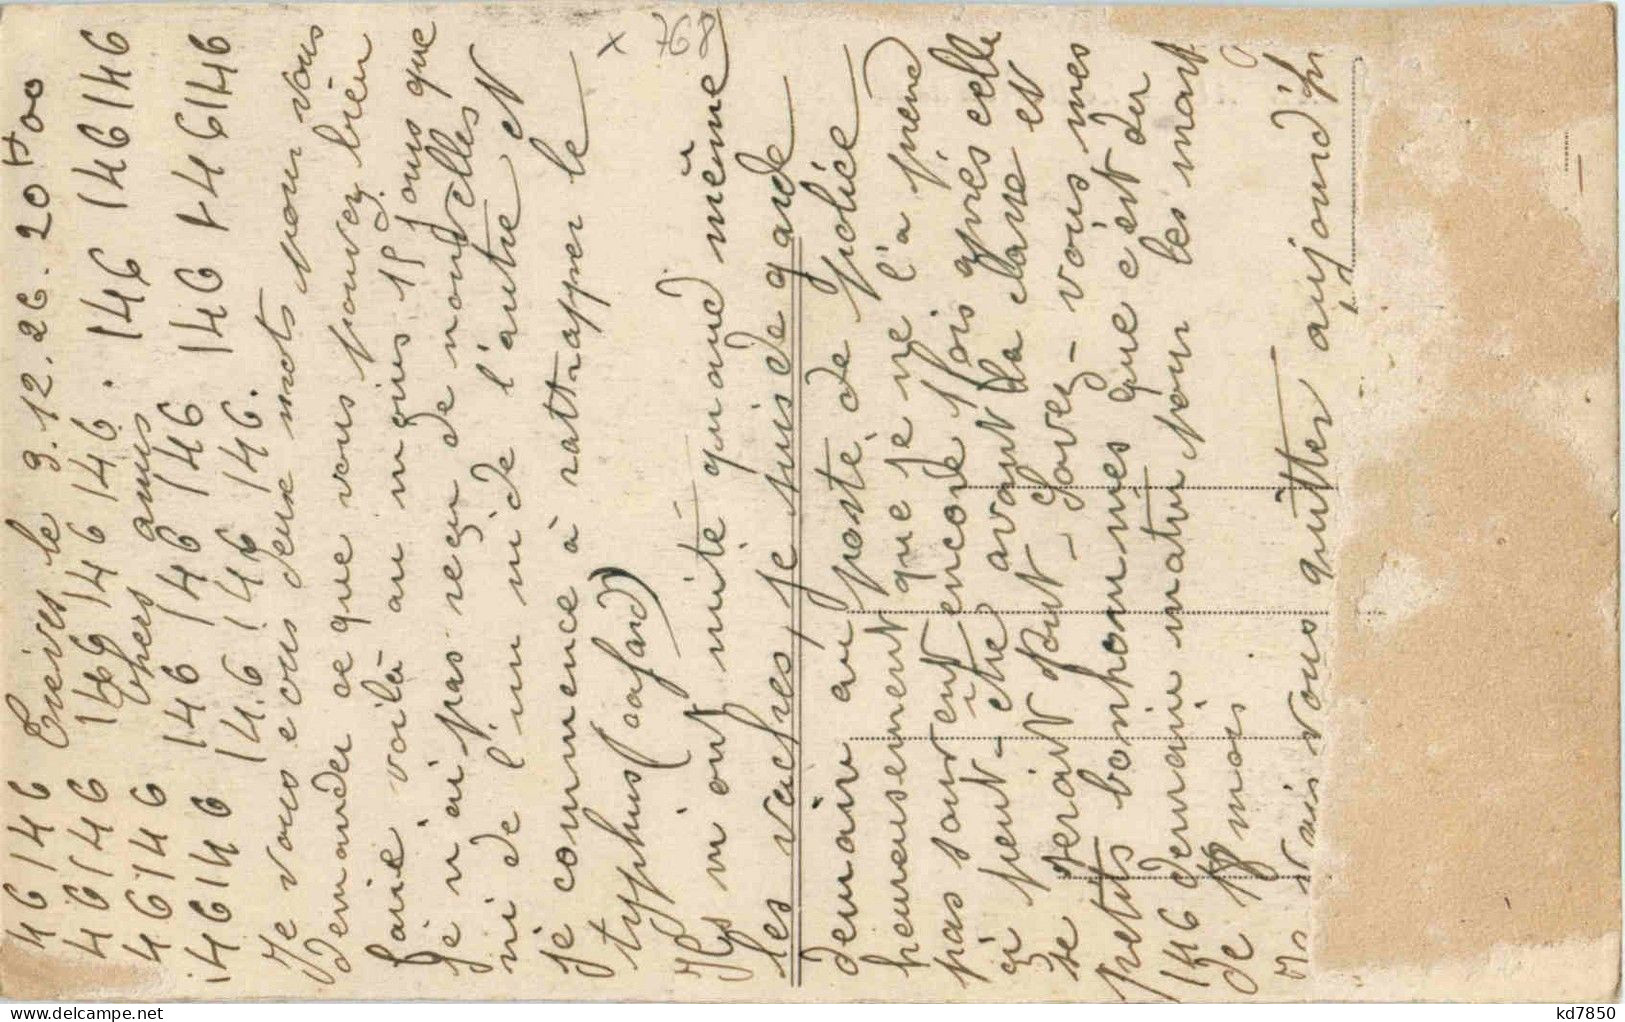 46 146 Trèves le 9.12.26. 20H00
46/146 146 146 146 146. 146 146 146 146
46 146 Chers amis
146 146 146 146 146 146 146 146 146
146 146 146 146.
Je vous écris deux mots pour vous
demander ce que vous pouvez bien
faire voilà au moins 15 jours que
je n'ai pas reçu de nouvelles
ni de l'un ni de l'autre et
je commence à rattrapper le
typhus (cafard)
× 768
Ils m'ont mité quand même
les vaches, je suis de garde
demain au poste de police
heureusement que je ne l'a prend
pas souvent encore 1 fois après celle
ci peut-être avant la classe et
se serait tout - Savez-vous mes
petits bonhommes que c'est du
146 demain matin pour les mart
de 18 mois
Je vais vous quitter aujourd'h
kd7850